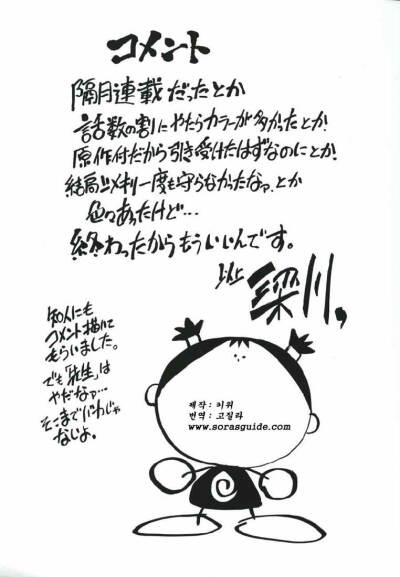 コメント
隔月連載だったとか
話数の割にやたらカラーが多かったとか!
原作付だから引き受けたはずなのにとか!
結局〆メキリ一度も守らなかったなァ、とか
色々あったけど…
終わったからもういいんです。
以上 深川,
知人にも
コメント描いて
もらいました。
でも「先生」は
やだなァ…
そこまでバカじゃ
ないよ。
제작 : 키위
번역 : 고질라
www.sorasguide.com